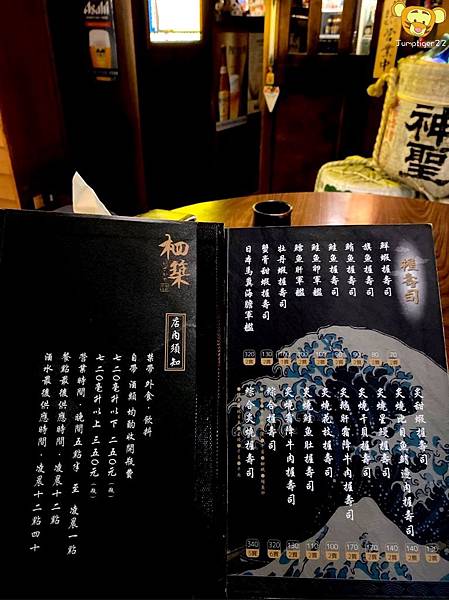 Jumptiger22
神聖
栖築
店內須知
禁帶外食、飲料
自帶酒類 酌收開瓶費
七二〇毫升以下 二五〇元(瓶)
七二〇毫升以上 三五〇元(瓶)
營業時間:晚間五點半 至 凌晨一點
餐點最後供應時間:凌晨十二點
酒水最後供應時間:凌晨十二點四十
握壽司
鮮蝦握壽司
旗魚握壽司
鮪魚握壽司
鮭魚握壽司
鮭魚卵軍艦
鱈魚肝軍艦
牡丹蝦握壽司
蟹膏甜蝦握壽司
日本馬糞海膽軍艦
炙甜蝦握壽司
炙燒星鰻握壽司
炙燒干貝握壽司
炙鵝肝霜降牛肉握壽司
炙燒花枝握壽司
炙燒鮭魚肚握壽司
炙燒霜降牛肉握壽司
綜合握壽司
綜合炙燒握壽司